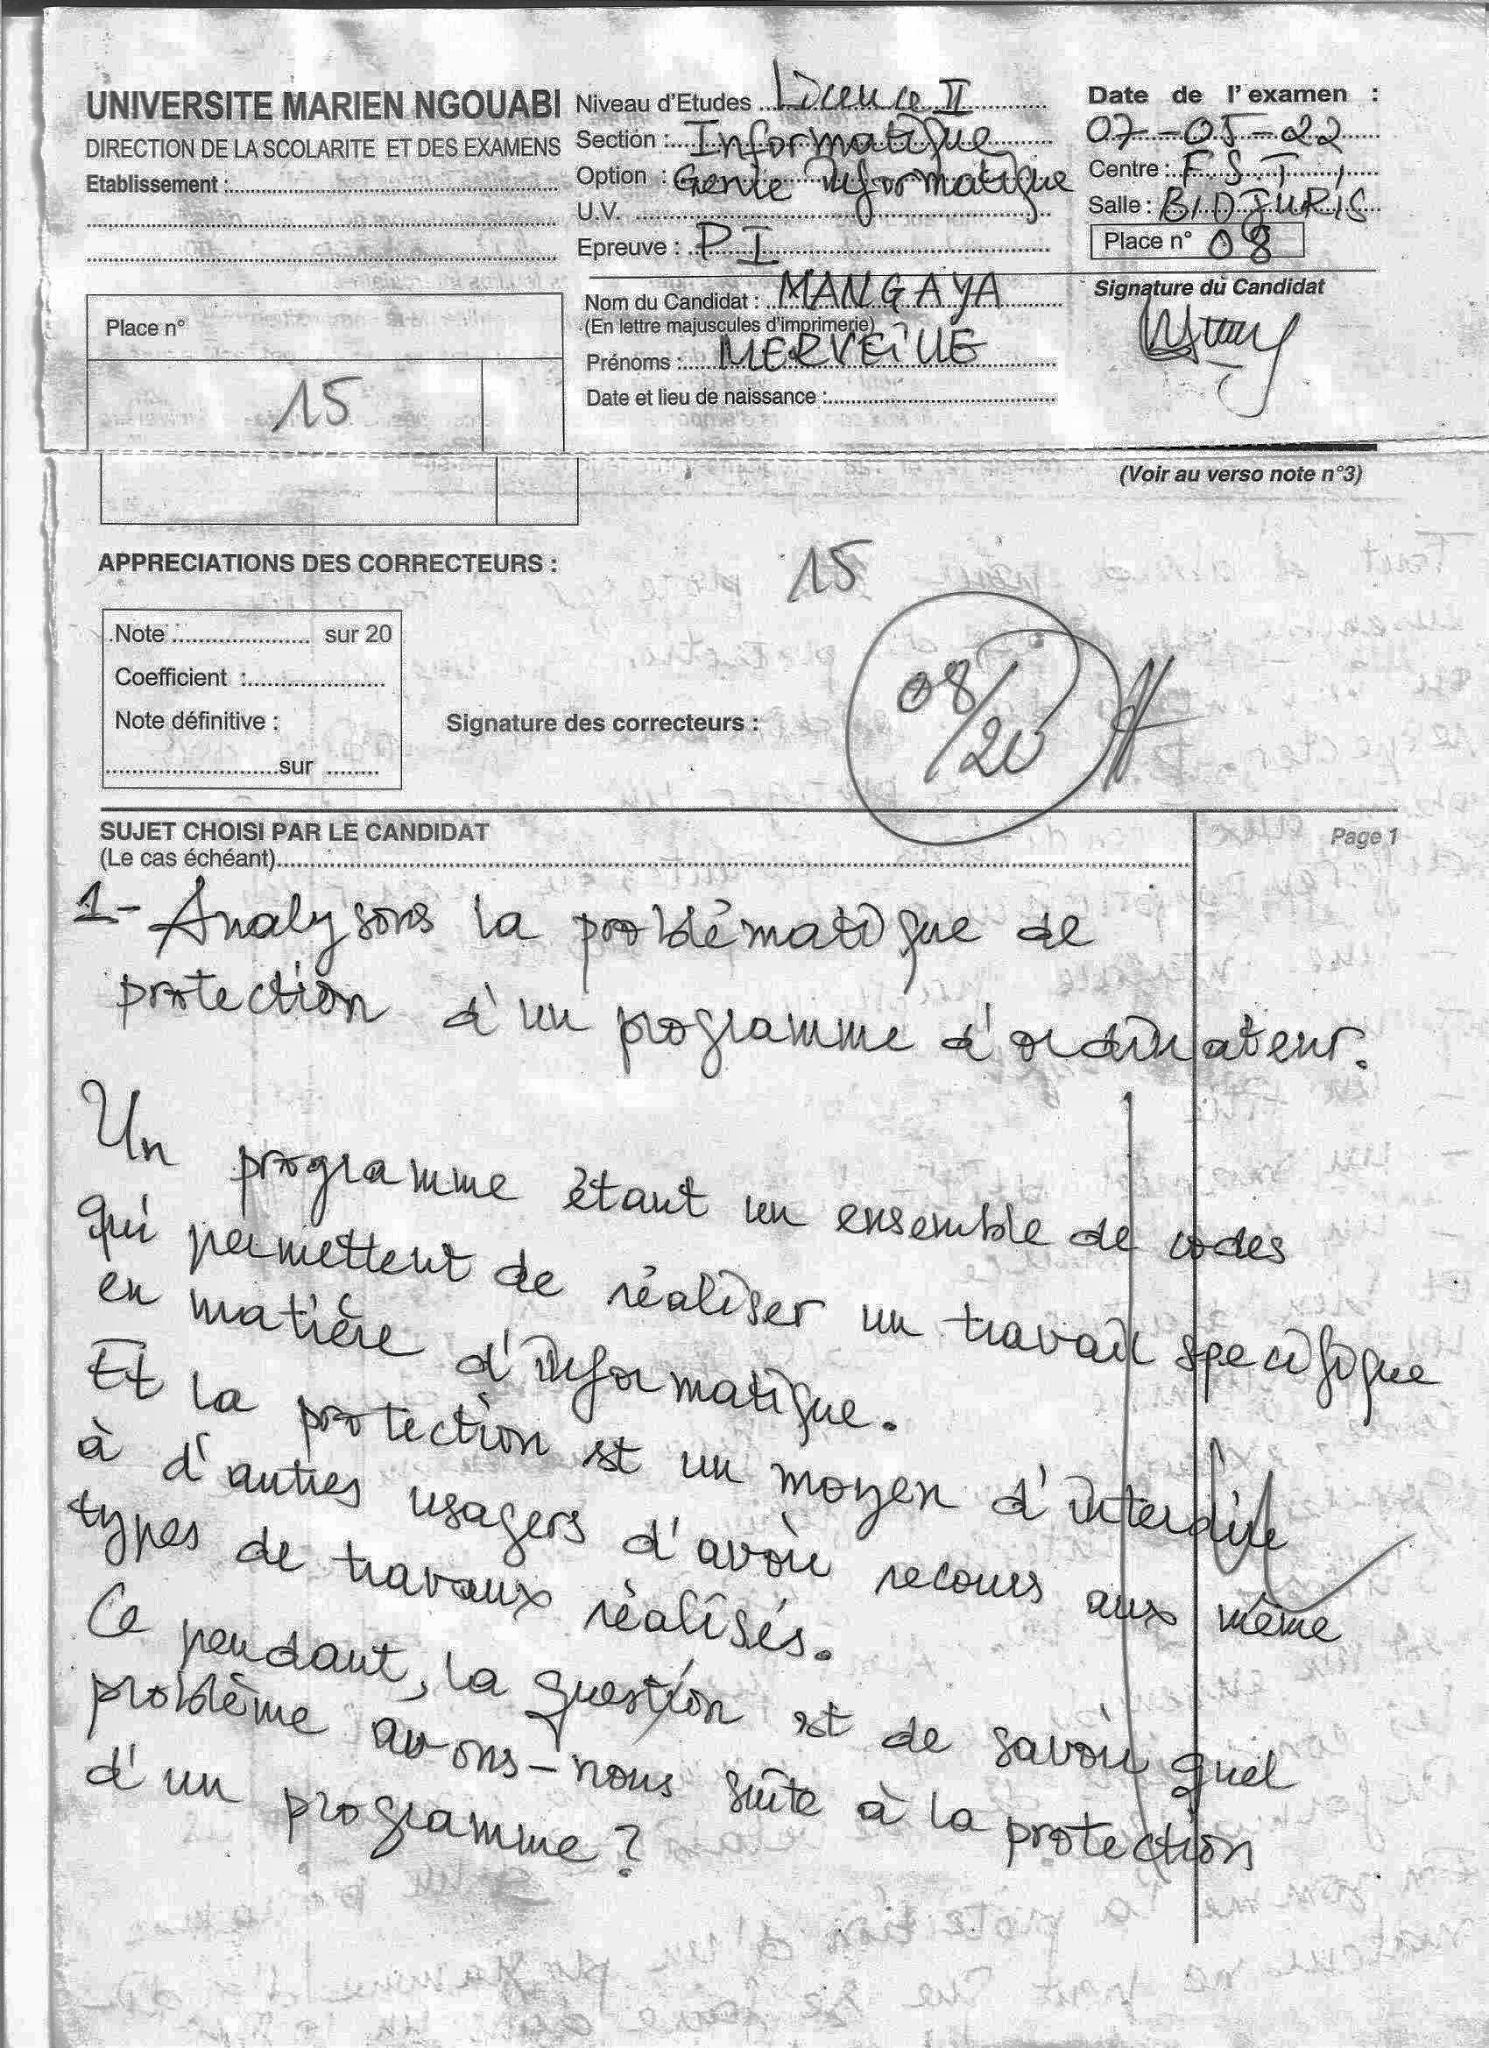 UNIVERSITE MARIEN NGOUABI
DIRECTION DE LA SCOLARITE ET DES EXAMENS
Etablissement :
Niveau d'Etudes Licence II
Section : Informatique
Option : Genie Informatique
U.V.
Epreuve : PI
Date de l'examen :
07-05-22
Centre : F S T
Salle : BIOJURIS
Place n° 08
Nom du Candidat : MANGAYA
(En lettre majuscules d'imprimerie)
Prénoms : MERVEILLE
Date et lieu de naissance :
Signature du Candidat
Place n°
15
(Voir au verso note n°3)
APPRECIATIONS DES CORRECTEURS :
15
Note sur 20
Coefficient :
Note définitive :
sur
Signature des correcteurs :
08/20
SUJET CHOISI PAR LE CANDIDAT
(Le cas échéant)
Page 1
1- Analysons la problématique de
protection d'un programme d'ordinateur.
Un programme étant un ensemble de codes
qui permettent de réaliser un travail specifique
en matière d'informatique.
Et la protection est un moyen d'interdire
à d'autres usagers d'avoir recours aux même
types de travaux réalisés.
Ce pendant, la question est de savoir quel
problème avons-nous suite à la protection
d'un programme ?